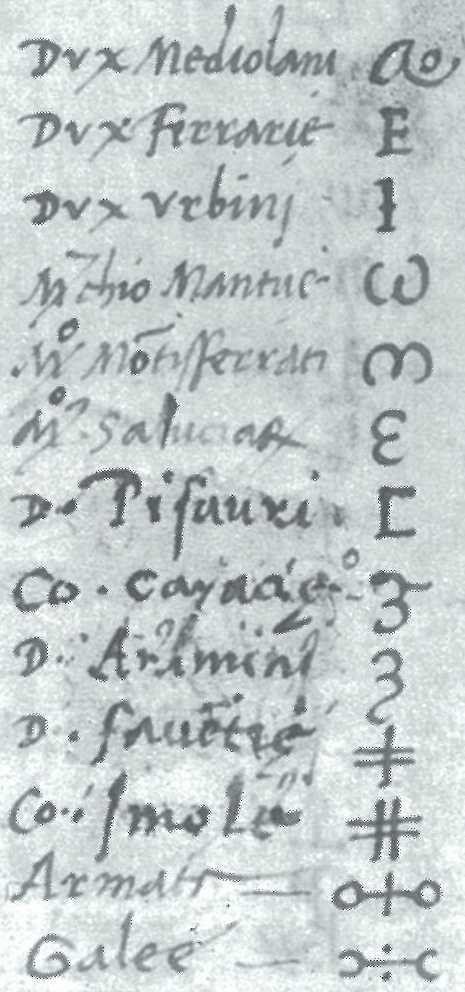 Dux Mediolani
Dux Ferrarie E
Dux Urbinj
Mchio Mantue ω
Mo Mõtisferrati
Mo Saluciar ε
D. Pisauri
Co.
D. Arimini
D. Favētie
Co. Imole
Armati
Galee